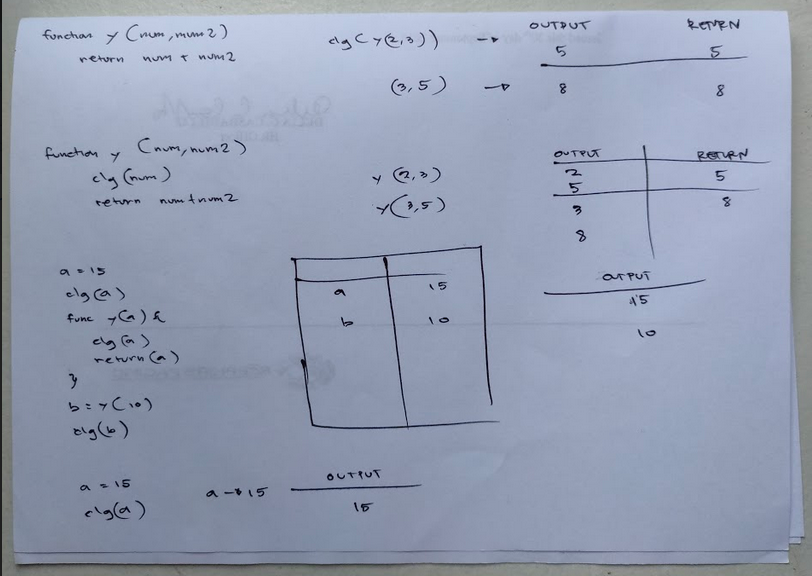 function y (num, num2)
return num + num2
clg( y(2,3)) →
(3,5) →
OUTPUT RETURN
5 5
8 8
function y (num, num2)
clg(num)
return num+num2
y (2,3)
y(3,5)
OUTPUT RETURN
2 5
5
3 8
8
a = 15
clg(a)
func y(a) {
clg(a)
return(a)
}
b = y(10)
clg(b)
a 15
b 10
OUTPUT
15
10
a = 15
clg(a)
a → 15
OUTPUT
15